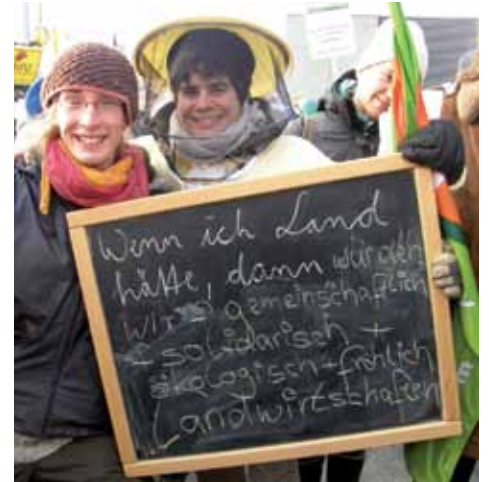 Wenn ich Land
hätte, dann würden
wir gemeinschaftlich
+ solidarisch +
ökologisch + fröhlich
Landwirtschaften